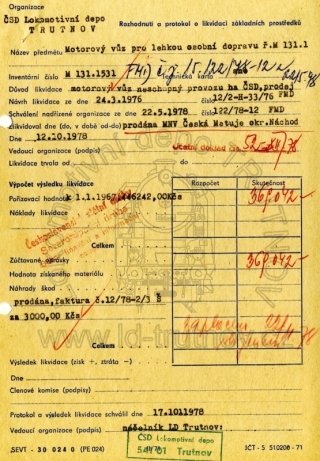 Organizace
ČSD Lokomotivní depo
TRUTNOV
Rozhodnutí a protokol o likvidaci základních prostředků
Název předmětu Motorový vůz pro lehkou osobní dopravu Ř.M 131.1
Inventární číslo M 131.1531 Technická karta
Důvod likvidace motorový vůz neschupný provozu na ČSD, prodej
Návrh likvidace ze 24.3.1976 čj. 12/2-H-33/76 FMD
Schválení nadřízené organizace ze 22.5.1978 čj. 122/78-12 FMD
Likvidoval dne (v době od-do) prodána MNV Česká Metuje okr. Náchod
Dne 12.10.1978
Účetní doklad
Vedoucí organizace (podpis)
Likvidace trvala od do
Výpočet výsledku likvidace
Rozpočet
Skutečnost
Pořizovací hodnota k 1.1.1967 446242,00Kčs
369.042-
Náklady likvidace
Celkem
Zúčtované oprávky
369.042-
Hodnota získaného materiálu
Náhrady škod
prodána, faktura č.12/78-2/3 B
za 3000,00 Kčs
Celkem
Výsledek likvidace (zisk +, ztráta -)
Dne
Členové komise (podpisy)
Protokol a výsledek likvidace schválil dne 17.101978
Vedoucí organizace (podpis) náčelník LD Trutnov:
ČSD Lokomotivní depo
541 01 Trutnov
SEVT - 30 024 0 (PE 024)
JČT - 5 510208 - 71
www.ld-trutnov